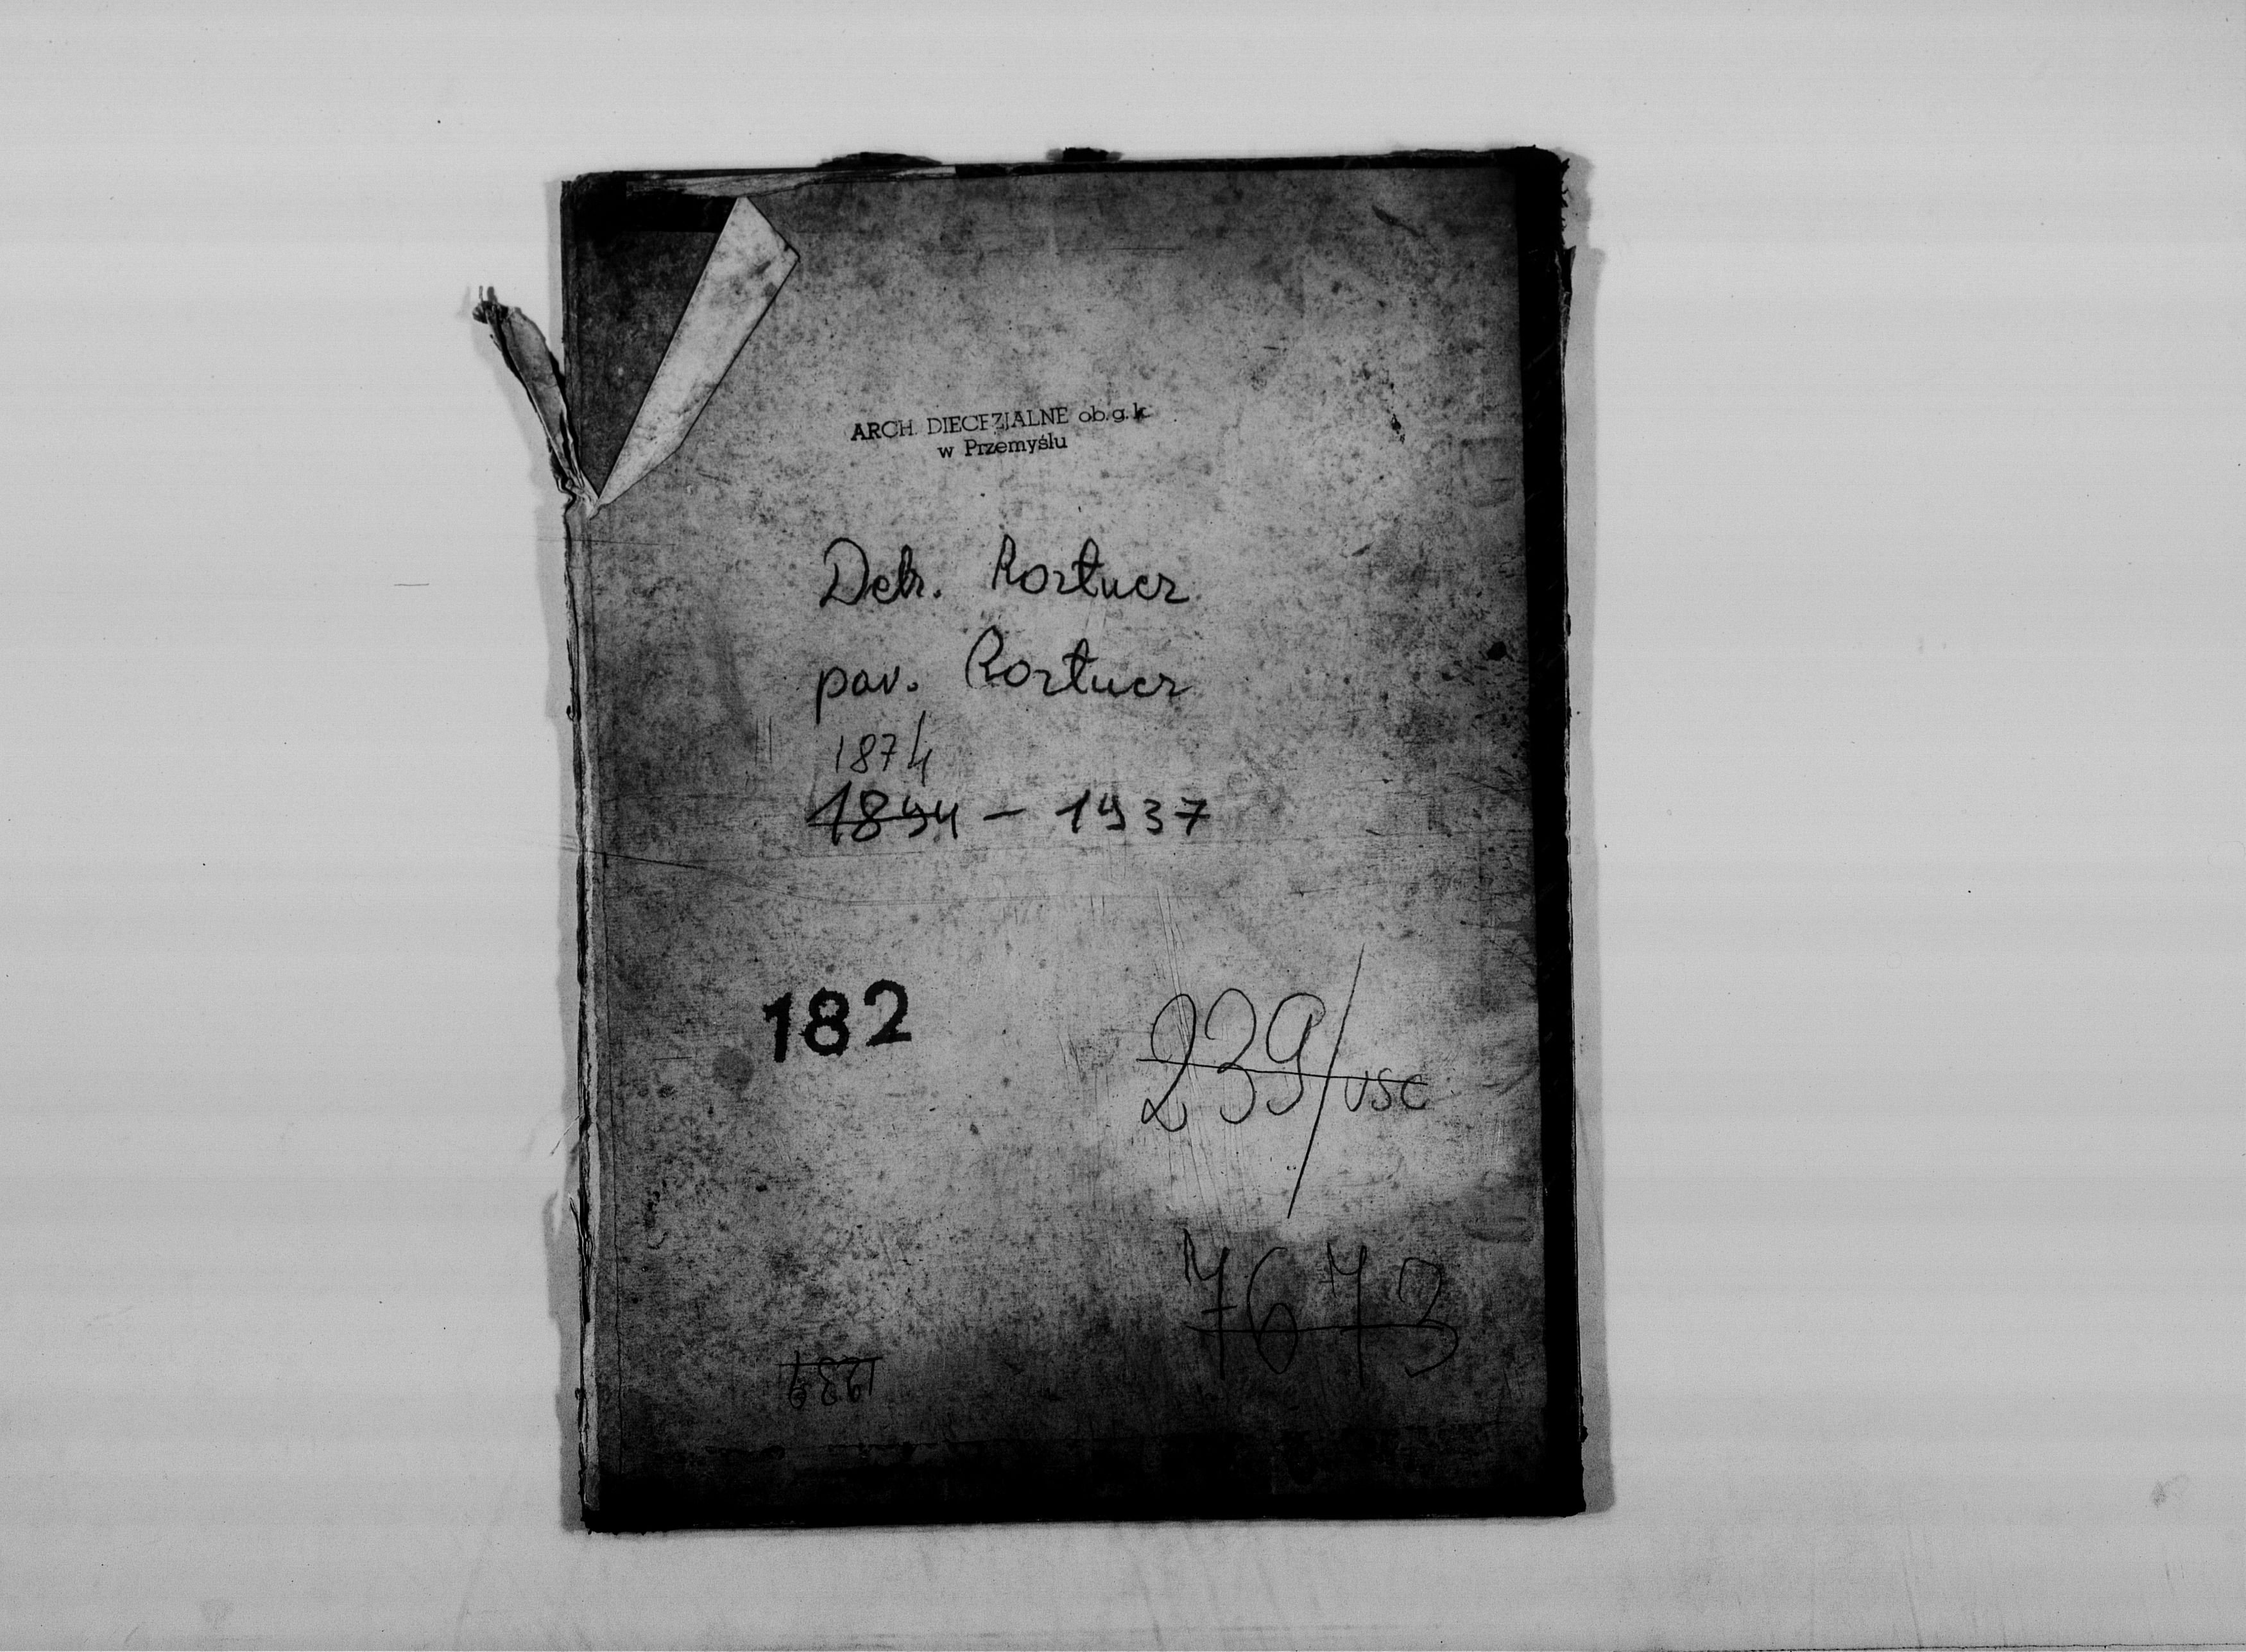 ARCH. DIECEZJALNE ob. g. k.
w Przemyślu
Dek. Roztucz
par. Roztucz
1874
1894 - 1937
182
239/USC
7673
1239